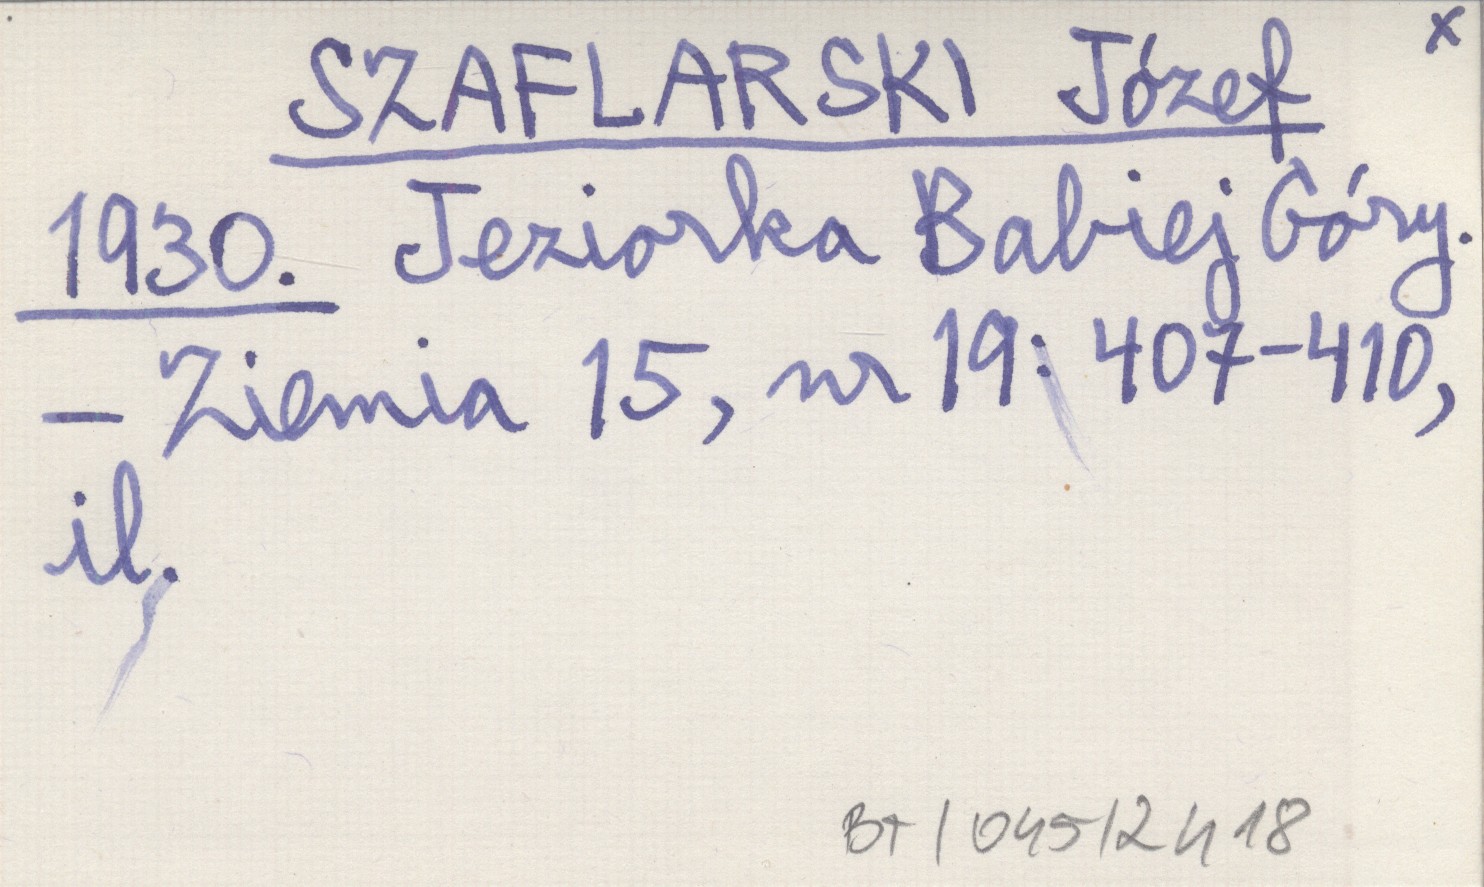 x
SZAFLARSKI Józef
1930. Jeziorka Babiej Góry.
– Ziemia 15, nr 19: 407–410,
il.
BT/045/2418